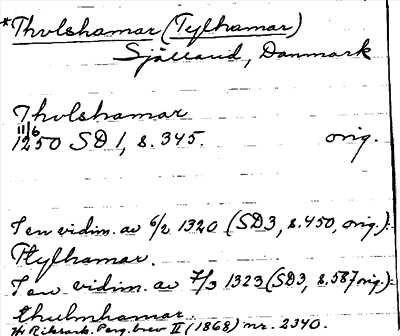 *Thulshamar (Tylhamar)
Sjælland, Danmark
Thulshamar
11/6
1250 SD 1, s. 345. orig.
I en vidim. av 6/2 1320 (SD3, s. 450, orig.):
Hylhamar.
I en vidim. av 7/3 1323 (SD3, s. 587 orig):
thulmhamar.
Riksark. Perg. brev II (1868) nr. 2340.